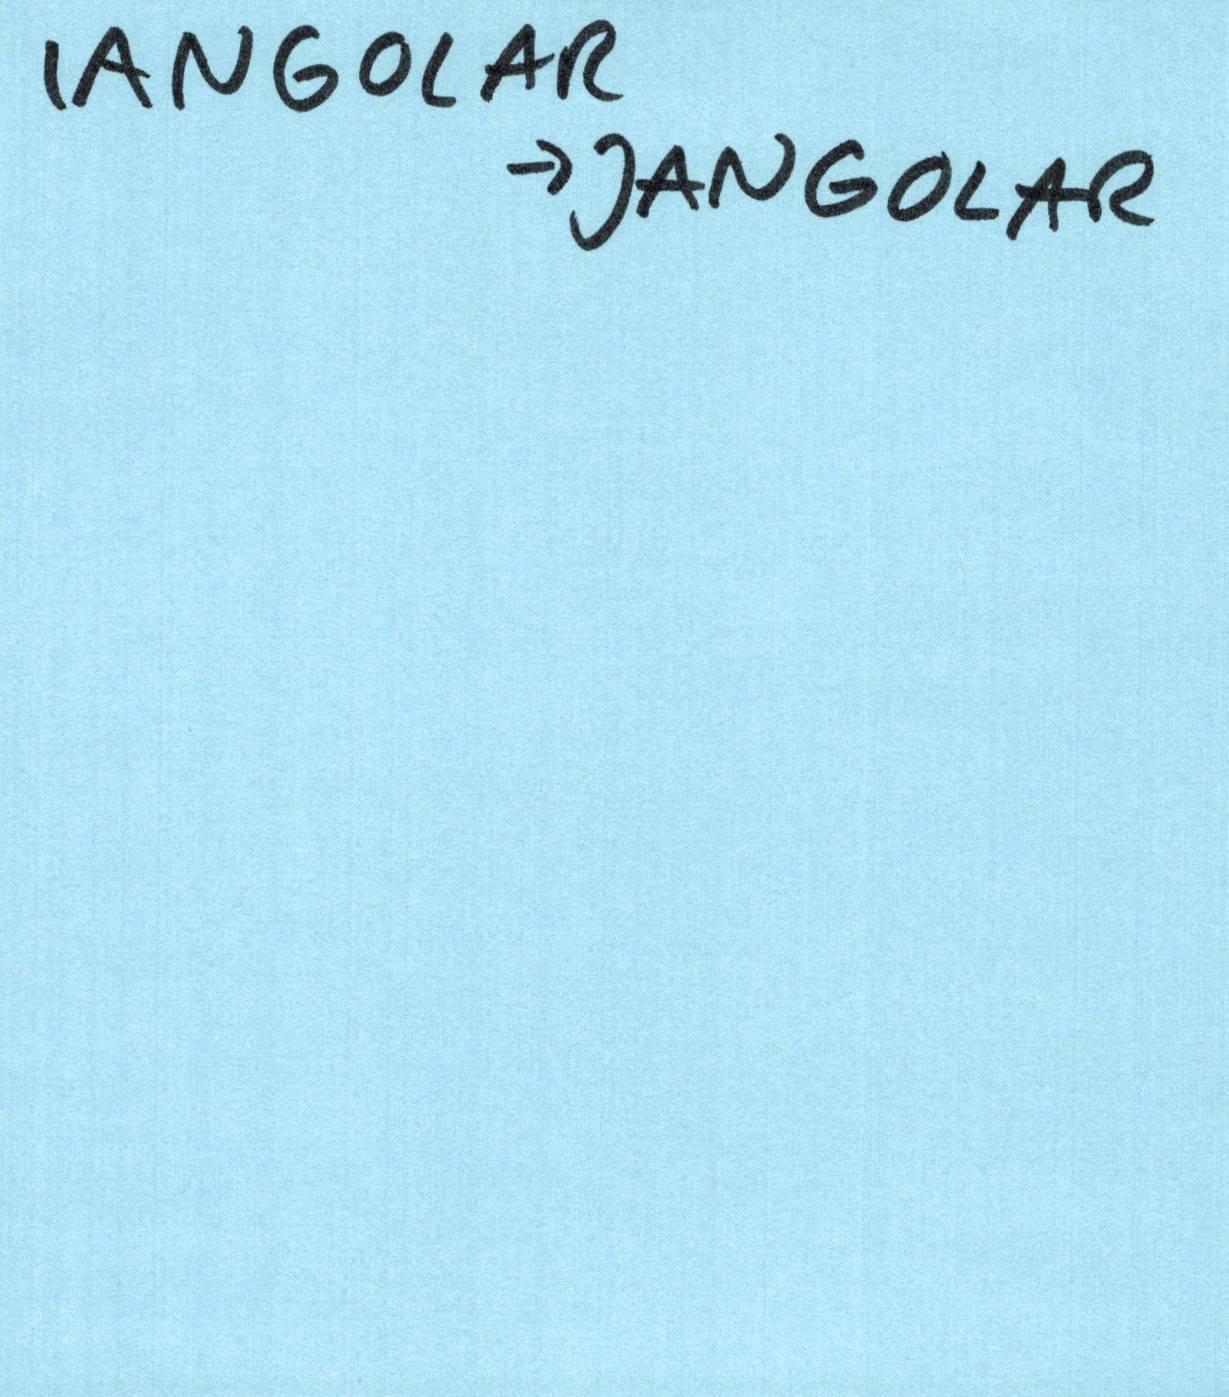 IANGOLAR
→JANGOLAR